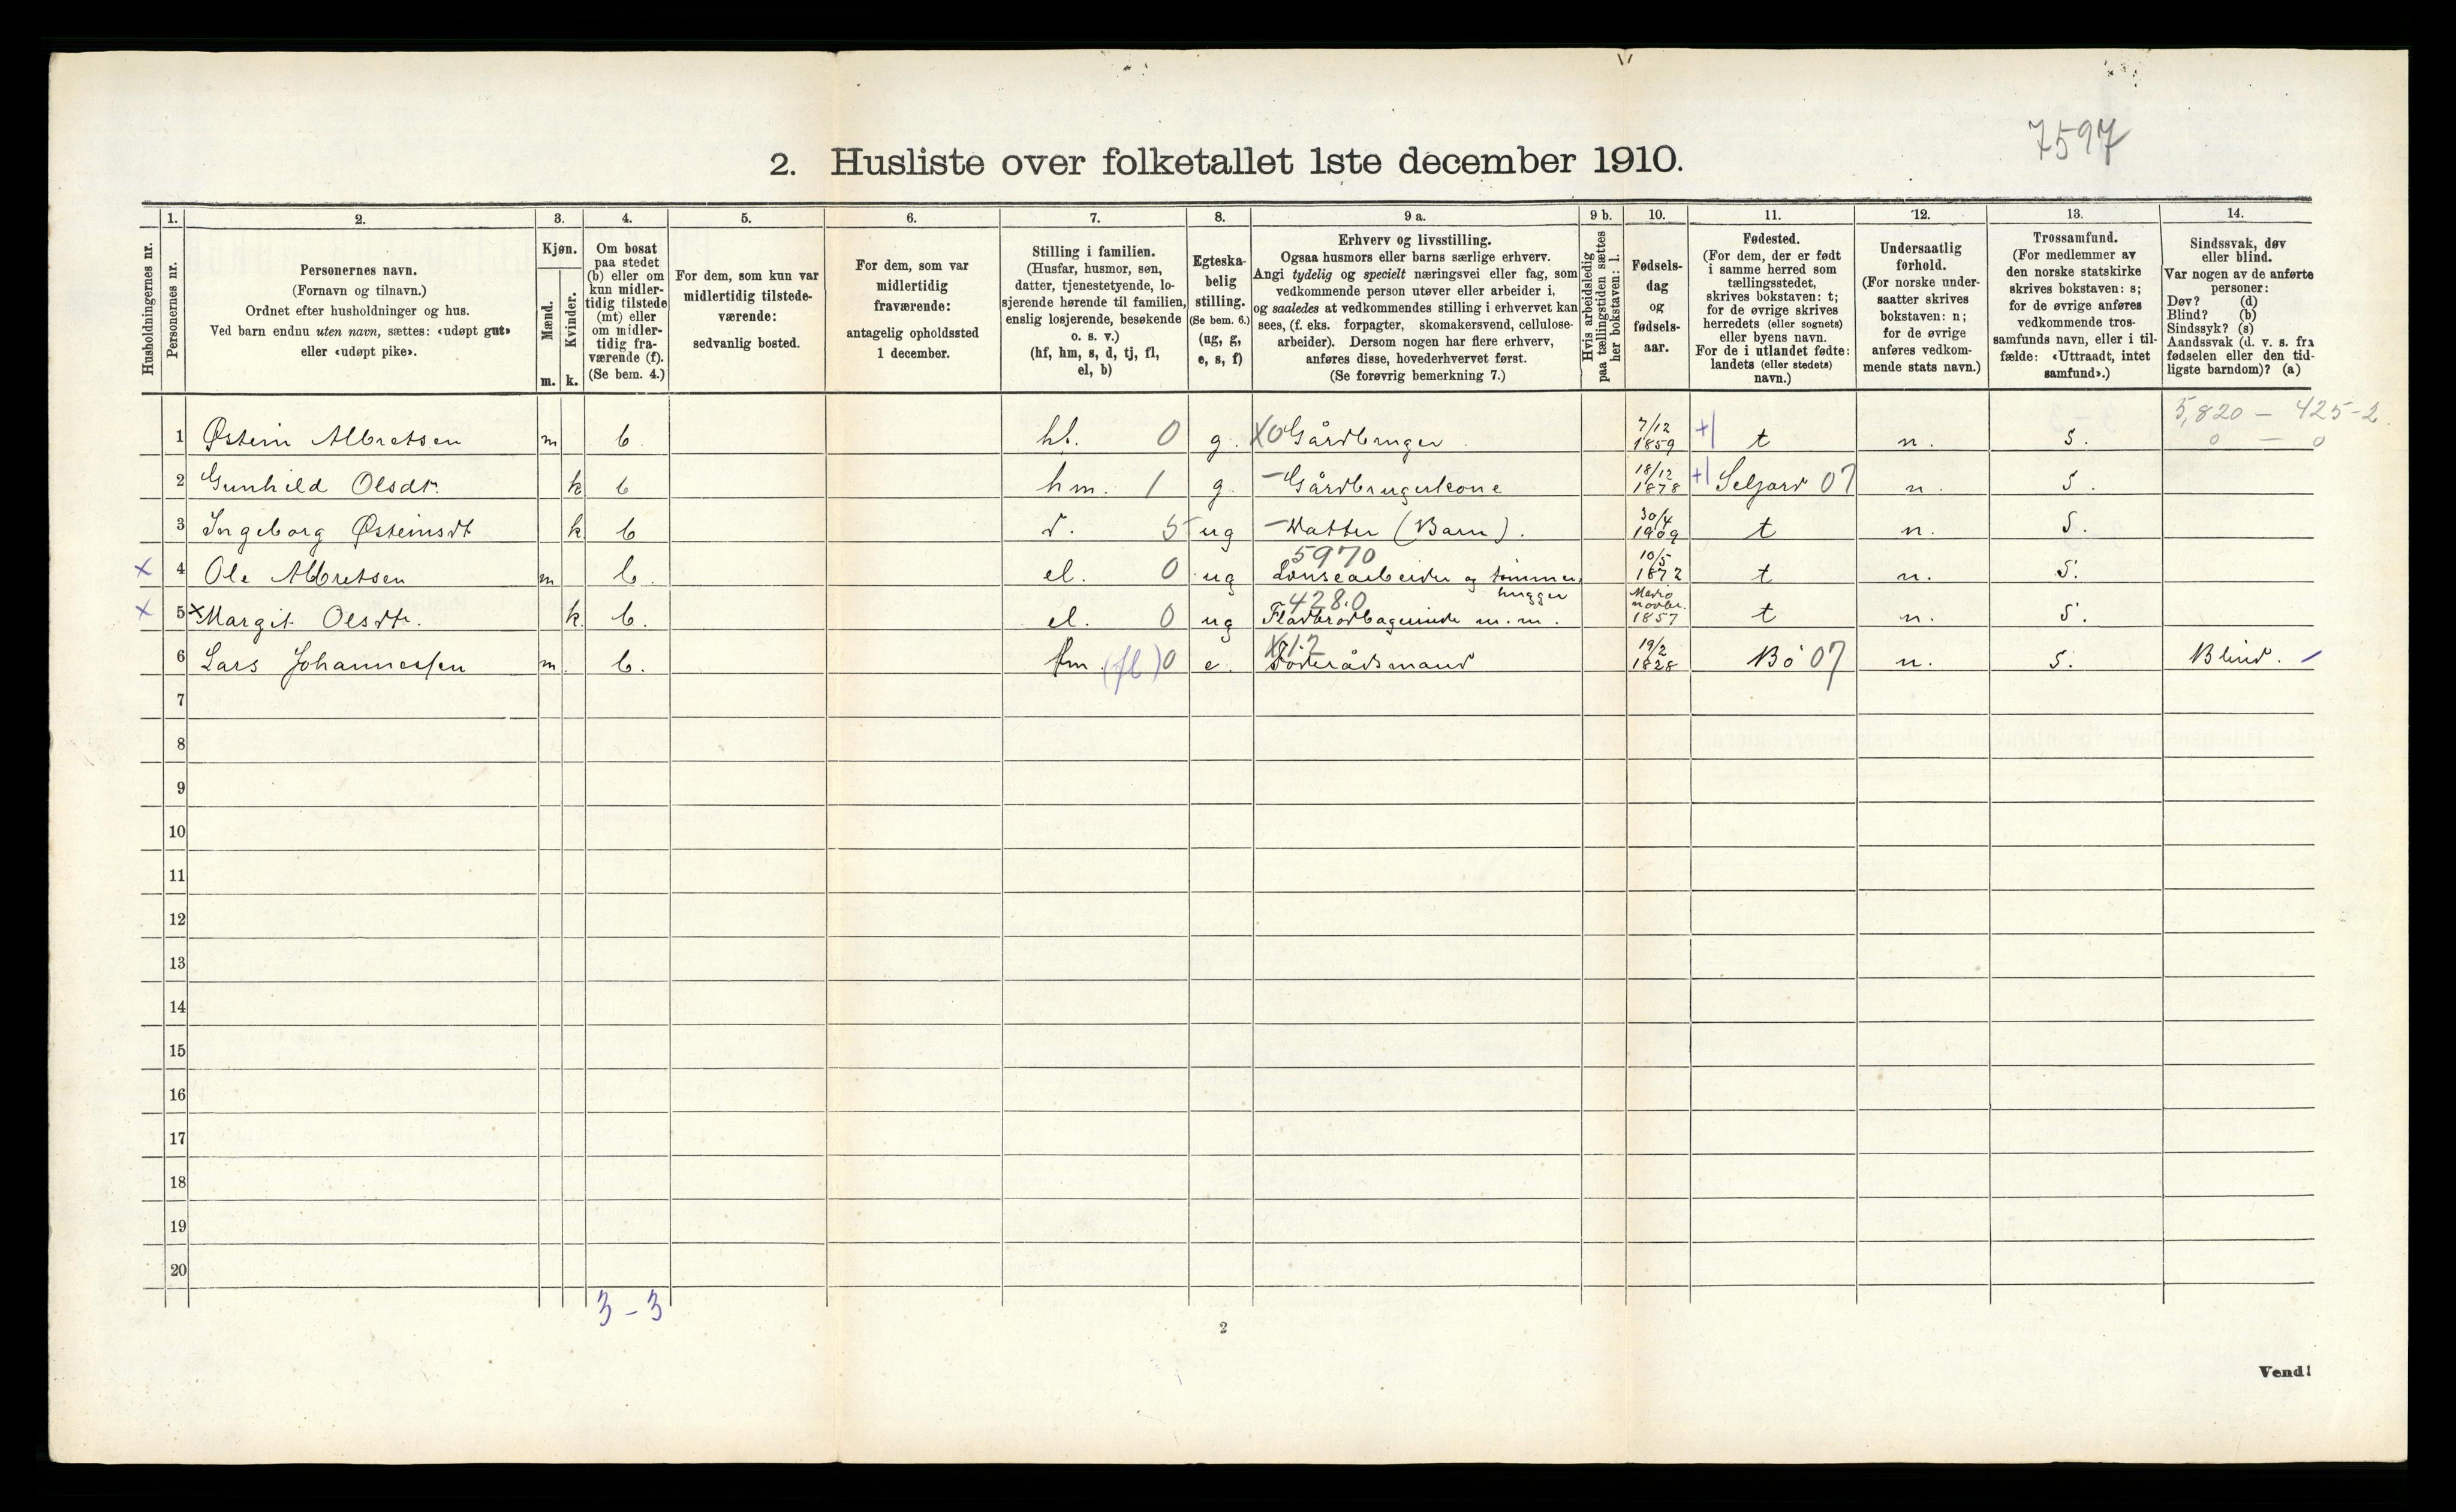 7597
2. Husliste over folketallet 1ste december 1910.
Husholdningernes nr.
1.
Personernes nr.
2.
Personernes navn.
(Fornavn og tilnavn.)
Ordnet efter husholdninger og hus.
Ved barn endnu uten navn, sættes: «udøpt gut»
eller «udøpt pike».
3.
Kjøn.
Mænd.
Kvinder.
m. k.
4.
Om bosat
paa stedet
(b) eller om
kun midler-
tidig tilstede
(mt) eller
om midler-
tidig fra-
værende (f).
(Se bem. 4.)
5.
For dem, som kun var
midlertidig tilstede-
værende:
sedvanlig bosted.
6.
For dem, som var
midlertidig
fraværende:
antagelig opholdssted
1 december.
7.
Stilling i familien.
(Husfar, husmor, søn,
datter, tjenestetyende, lo-
sjerende hørende til familien,
enslig losjerende, besøkende
o. s. v.)
(hf, hm, s, d, tj, fl,
el, b)
8.
Egteska-
belig
stilling.
(Se bem. 6.)
(ug, g,
e, s, f)
9 a.
Erhverv og livsstilling.
Ogsaa husmors eller barns særlige erhverv.
Angi tydelig og specielt næringsvei eller fag, som
vedkommende person utøver eller arbeider i,
og saaledes at vedkommendes stilling i erhvervet kan
sees, (f. eks. forpagter, skomakersvend, cellulose-
arbeider). Dersom nogen har flere erhverv,
anføres disse, hovederhvervet først.
(Se forøvrig bemerkning 7.)
9 b.
Hvis arbeidsledig
paa tællingstiden sættes
her bokstaven: l.
10.
Fødsels-
dag
og
fødsels-
aar.
11.
Fødested.
(For dem, der er født
i samme herred som
tællingsstedet,
skrives bokstaven: t;
for de øvrige skrives
herredets (eller sognets)
eller byens navn.
For de i utlandet fødte:
landets (eller stedets)
navn.)
12.
Undersaatlig
forhold.
(For norske under-
saatter skrives
bokstaven: n;
for de øvrige
anføres vedkom-
mende stats navn.)
13.
Trossamfund.
(For medlemmer av
den norske statskirke
skrives bokstaven: s;
for de øvrige anføres
vedkommende tros-
samfunds navn, eller i til-
fælde: «Uttraadt, intet
samfund».)
14.
Sindssvak, døv
eller blind.
Var nogen av de anførte
personer:
Døv? (d)
Blind? (b)
Sindssyk? (s)
Aandssvak (d. v. s. fra
fødselen eller den tid-
ligste barndom)? (a)
5,820 — 425-2
0 — 0
1 Østein Albretsen m b. hf. 0 g. X0 Gårdbruger 7/12 1859 +1 t n. s.
2 Gunhild Olsdt. k b hm. 1 g. — Gårdbrugerkone 18/12 1878 +1 Seljord 07 n. s.
3 Ingeborg Østeinsdt k b d. 5 ug — Datter (Barn). 30/4 1909 t n. s.
5970
x 4 Ole Albretsen m b. el. 0 ug Løusearbeider og tømmer hugger 10/5 1872 t n. s.
4280
x 5 x Margit Olsdtr. k. b. el. 0 ug Fladbrødbagerinde m. m. Medio novbr. 1857 t n. s.
X12
6 Lars Johannessen m. b. fm. (fl) 0 e. Føderådsmand 19/2 1828 Bø 07 n. s. Blind.
7
8
9
10
11
12
13
14
15
16
17
18
19
20
3 - 3
2
Vend!